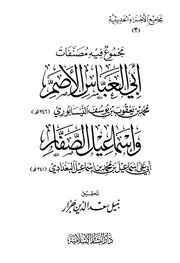 مجاميع الأجزاء الحديثية
(٢)
مجموع فيه مصنفات
أبي العباس الأصم
محمد بن يعقوب بن يوسف النيسابوري (٣٤٦هـ)
وإسماعيل الصفار
أبي علي إسماعيل بن محمد بن إسماعيل البغدادي (٣٤١هـ)
تحقيق
نبيل سعد الدين جرار
دار البشائر الإسلامية